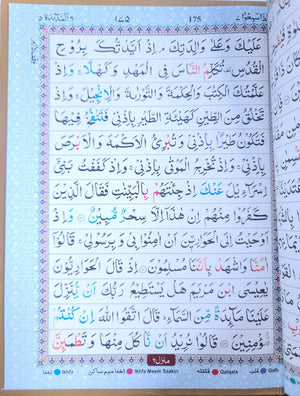 وَاِذَا سَمِعُوْا ٧ ١٧٥ 175 اَلْمَآئِدَة ٥
عَلَيْكَ وَعَلٰى وَالِدَتِكَ ۘ اِذْ اَيَّدْتُّكَ بِرُوْحِ
الْقُدُسِ ۫ تُكَلِّمُ النَّاسَ فِى الْمَهْدِ وَكَهْلًا ۚ وَاِذْ
عَلَّمْتُكَ الْكِتٰبَ وَالْحِكْمَةَ وَالتَّوْرٰىةَ وَالْاِنْجِيْلَ ۚ وَاِذْ
تَخْلُقُ مِنَ الطِّيْنِ كَهَيْئَةِ الطَّيْرِ بِاِذْنِىْ فَتَنْفُخُ فِيْهَا
فَتَكُوْنُ طَيْرًۢا بِاِذْنِىْ وَتُبْرِئُ الْاَكْمَهَ وَالْاَبْرَصَ
بِاِذْنِىْ ۚ وَاِذْ تُخْرِجُ الْمَوْتٰى بِاِذْنِىْ ۚ وَاِذْ كَفَفْتُ بَنِىْۤ
اِسْرَآءِيْلَ عَنْكَ اِذْ جِئْتَهُمْ بِالْبَيِّنٰتِ فَقَالَ الَّذِيْنَ
كَفَرُوْا مِنْهُمْ اِنْ هٰذَاۤ اِلَّا سِحْرٌ مُّبِيْنٌ ۝ وَاِذْ
اَوْحَيْتُ اِلَى الْحَوَارِيّٖنَ اَنْ اٰمِنُوْا بِىْ وَبِرَسُوْلِىْ ۚ قَالُوْۤا
اٰمَنَّا وَاشْهَدْ بِاَنَّنَا مُسْلِمُوْنَ ۝ اِذْ قَالَ الْحَوَارِيُّوْنَ
يٰعِيْسَى ابْنَ مَرْيَمَ هَلْ يَسْتَطِيْعُ رَبُّكَ اَنْ يُّنَزِّلَ
عَلَيْنَا مَآئِدَةً مِّنَ السَّمَآءِ ؕ قَالَ اتَّقُوا اللّٰهَ اِنْ كُنْتُمْ
مُّؤْمِنِيْنَ ۝ قَالُوْا نُرِيْدُ اَنْ نَّاْكُلَ مِنْهَا وَتَطْمَئِنَّ
منزل ٢
اخفا Ikhfa اخفا میم ساکن Ikhfa Meem Saakin قلقلہ Qalqala قلب Qalb